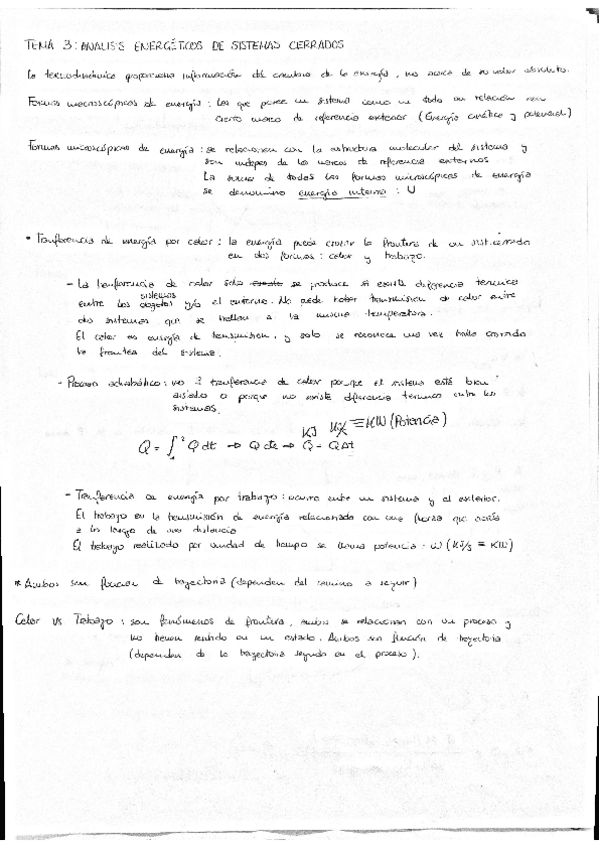 TEMA 3: ANALISIS ENERGÉTICOS DE SISTEMAS CERRADOS
La termodinámica proporciona información del cambio de la energía, no acerca de su valor absoluto.
Formas macroscópicas de energía: las que posee un sistema como un todo en relación con
cierto marco de referencia exterior (Energía cinética y potencial)
Formas microscópicas de energía: se relacionan con la estructura molecular del sistema y
son indepes de los marcos de referencia externos
La suma de todas las formas microscópicas de energía
se denomina energía interna: U
• Tranferencia de energía por calor: la energía puede cruzar la frontera de un sist. cerrado
en dos formas: calor y trabajo.
- La tranferencia de calor solo se produce si existe diferencia termica
sistemas
entre los objetos y/o el entorno. No puede haber transmision de calor entre
dos sistemas que se hallen a la misma temperatura.
El calor es energía de transmision, y solo se reconoce una vez halla cruzado
la frontea del sistema.
- Proceso adiabático: no ∃ tranferencia de calor porque el sistema está bien
aislado o porque no existe diferencia termica entre los
sistemas.
KJ KJ/s ≡ KW (Potencia)
Q = ∫₁² Q̇ dt → Q̇ cte → Q = Q̇Δt
- Tranferencia de energía por trabajo: ocurre entre un sistema y el exterior.
El trabajo es la transmisión de energía relacionada con una fuerza que actúa
a lo largo de una distancia
El trabajo realizado por unidad de tiempo se llama potencia: ẇ (KJ/s = KW)
* Ambos son funcion de trayectoria (dependen del camino a seguir)
Calor vs Trabajo: son fenómenos de frontera, ambos se relacionan con un proceso y
no tienen sentido en un estado. Ambos son función de trayectoria
(dependen de la trayectoria seguida en el proceso).